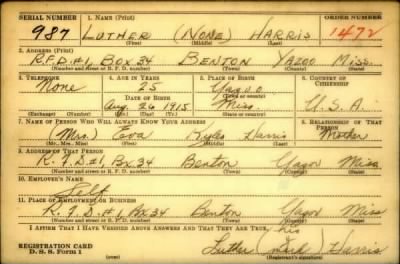 SERIAL NUMBER 1. NAME (Print) ORDER NUMBER
987 LUTHER (NONE) HARRIS 1472
(First) (Middle) (Last)
2. ADDRESS (Print)
R.F.D. #1, BOX 34 BENTON YAZOO MISS.
(Number and street or R. F. D. number) (Town) (County) (State)
3. TELEPHONE 4. AGE IN YEARS 5. PLACE OF BIRTH 6. COUNTRY OF CITIZENSHIP
None 25 Yazoo
DATE OF BIRTH (Town or county)
Aug. 26 1915 Miss. U.S.A.
(Mo.) (Day) (Yr.) (State or country)
7. NAME OF PERSON WHO WILL ALWAYS KNOW YOUR ADDRESS 8. RELATIONSHIP OF THAT PERSON
(Mrs.) Eva Harris Mother
(Mr., Mrs., Miss) (First) (Middle) (Last)
9. ADDRESS OF THAT PERSON
R.F.D. #1, Box 34 Benton Yazoo Miss
(Number and street or R. F. D. number) (Town) (County) (State)
10. EMPLOYER'S NAME
Self
11. PLACE OF EMPLOYMENT OR BUSINESS
R.F.D. #1 Box 34 Benton Yazoo Miss
(Number and street or R. F. D. number) (Town) (County) (State)
I AFFIRM THAT I HAVE VERIFIED ABOVE ANSWERS AND THAT THEY ARE TRUE.
his
REGISTRATION CARD Luther (mark) Harris
D. S. S. Form 1 (over) (Registrant's signature)